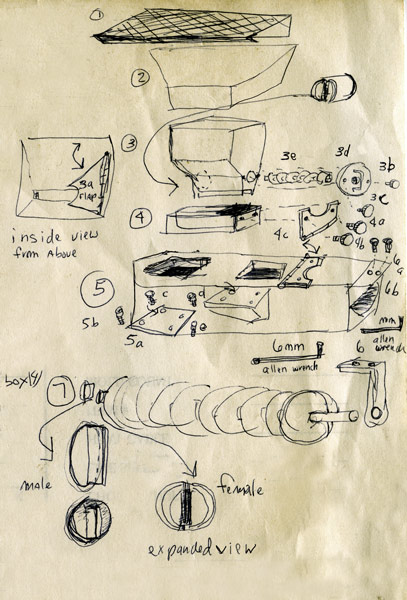 1
2
3
3e
3d
3b
3a
flap
3c
inside view
from Above
4
4a
4c
4b
6
a
5
c
d
6b
5b
5a
e
6mm
allen wrench
mm
allen
wrench
6
7
male
female
expanded view